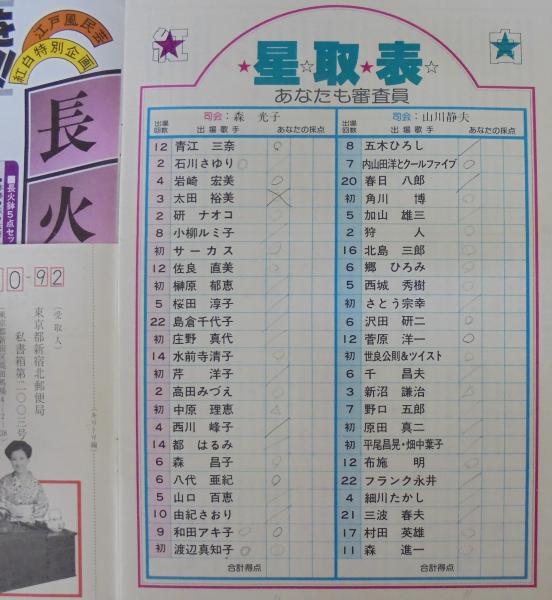 江戸風民芸
紅白特別企画
長火
■長火鉢5点セッ
0-92
(受取人)
東京都新宿北郵便局
私書箱第二〇〇三号
キリトリ線
紅
白
星取表
あなたも審査員
司会：森　光子
出場回数　出場歌手　あなたの採点
12 青江　三奈
2 石川さゆり
4 岩崎　宏美
3 太田　裕美
2 研　ナオコ
8 小柳ルミ子
初 サーカス
12 佐良　直美
初 榊原　郁恵
5 桜田　淳子
22 島倉千代子
初 庄野　真代
14 水前寺清子
初 芹　洋子
2 高田みづえ
初 中原　理恵
4 西川　峰子
14 都　はるみ
6 森　昌子
6 八代　亜紀
5 山口　百恵
10 由紀さおり
9 和田アキ子
初 渡辺真知子
合計得点
司会：山川静夫
出場回数　出場歌手　あなたの採点
8 五木ひろし
7 内山田洋とクールファイブ
20 春日　八郎
初 角川　博
5 加山　雄三
2 狩　人
16 北島　三郎
6 郷　ひろみ
5 西城　秀樹
初 さとう宗幸
6 沢田　研二
12 菅原　洋一
初 世良公則&ツイスト
6 千　昌夫
3 新沼　謙治
7 野口　五郎
初 原田　真二
初 平尾昌晃・畑中葉子
12 布施　明
22 フランク永井
4 細川たかし
21 三波　春夫
17 村田　英雄
11 森　進一
合計得点